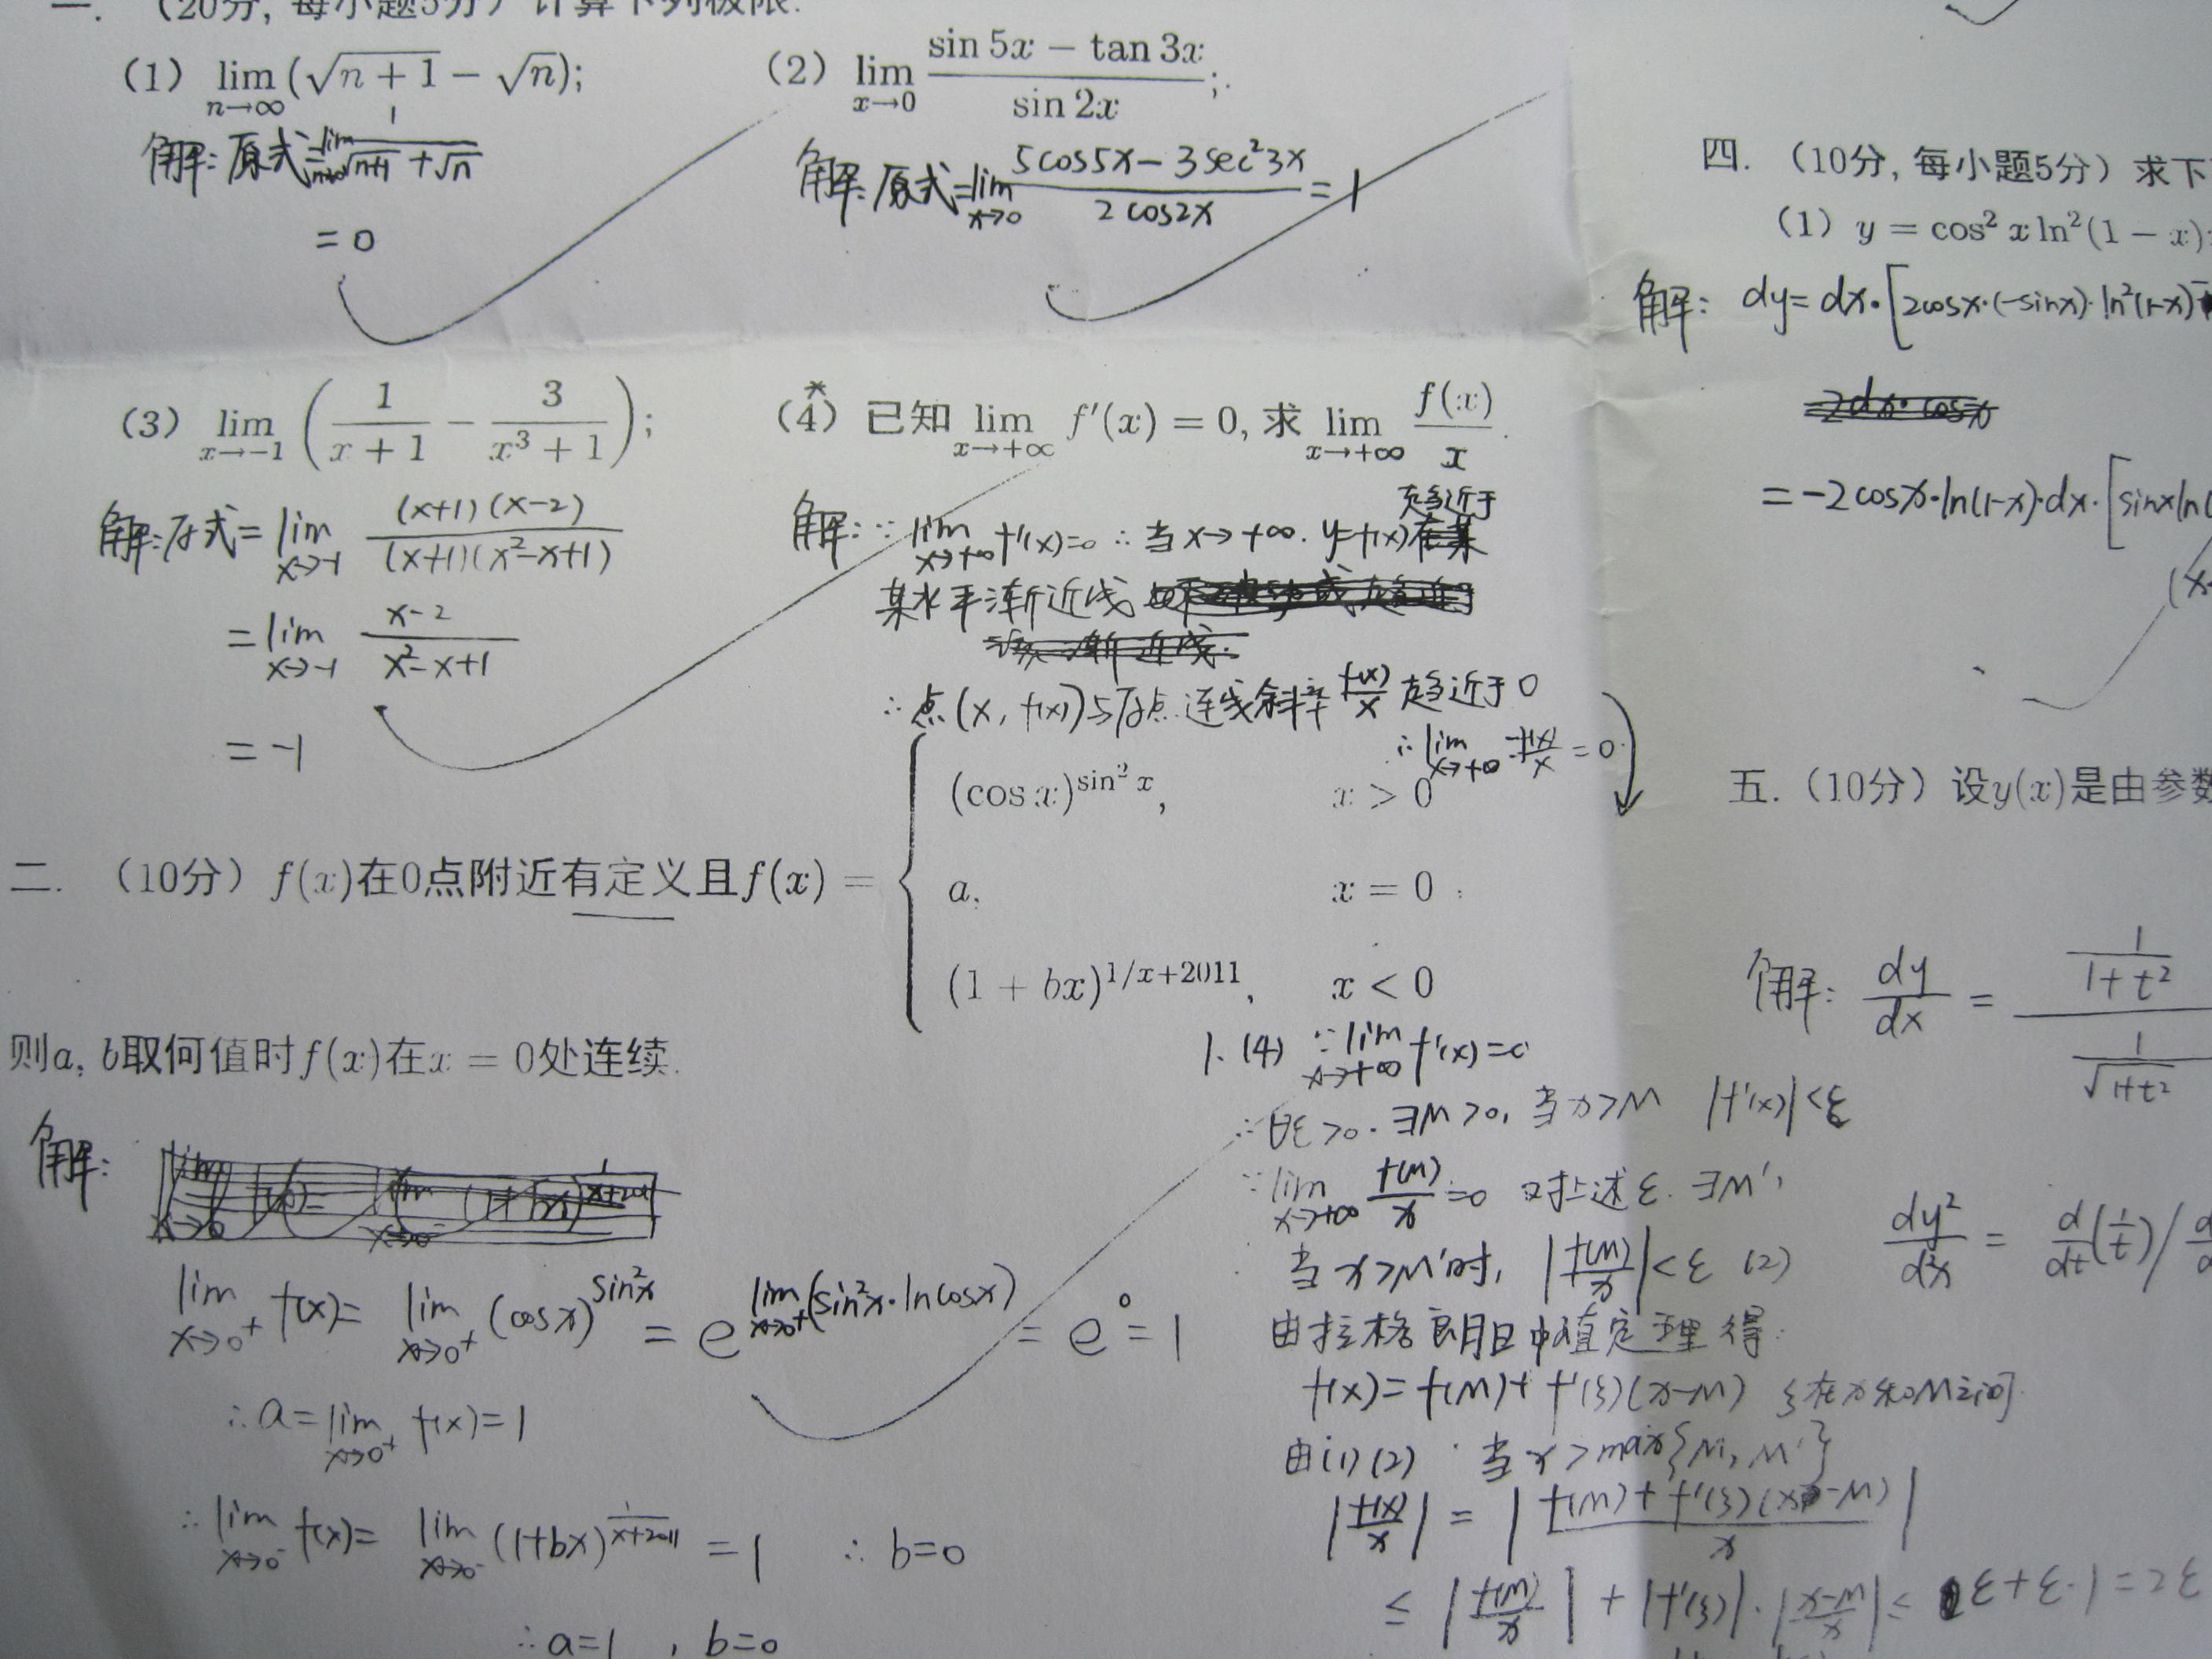 一. （20分, 每小题5分）计算下列极限.
（1） lim_{n→∞} (√(n+1) − √n);
解: 原式 = lim_{n→∞} 1/(√(n+1) + √n)
= 0
（2） lim_{x→0} (sin 5x − tan 3x)/(sin 2x);
解: 原式 = lim_{x→0} (5cos5x − 3sec²3x)/(2cos2x) = 1
（3） lim_{x→−1} (1/(x+1) − 3/(x³+1));
解: 原式 = lim_{x→−1} (x+1)(x−2)/((x+1)(x²−x+1))
= lim_{x→−1} (x−2)/(x²−x+1)
= −1
*
（4） 已知 lim_{x→+∞} f′(x) = 0, 求 lim_{x→+∞} f(x)/x.
解: ∵ lim_{x→+∞} f′(x)=0 ∴ 当x→+∞. y=f(x)趋近于
某水平渐近线
∴ 点(x, f(x))与原点连线斜率 f(x)/x 趋近于0
∴ lim_{x→+∞} f(x)/x = 0
二. （10分） f(x)在0点附近有定义且f(x) = {
(cos x)^{sin² x}, x > 0
a, x = 0
(1 + bx)^{1/x+2011}, x < 0
则a, b取何值时f(x)在x = 0处连续.
解:
lim_{x→0⁺} f(x) = lim_{x→0⁺} (cosx)^{sin²x} = e^{lim_{x→0⁺}(sin²x·lncosx)} = e⁰ = 1
∴ a = lim_{x→0⁺} f(x) = 1
∴ lim_{x→0⁻} f(x) = lim_{x→0⁻} (1+bx)^{1/(x+2011)} = 1 ∴ b=0
∴ a=1 , b=0
1. (4) ∵ lim_{x→+∞} f′(x)=0
∴ ∀ε>0. ∃M>0, 当x>M |f′(x)|<ε
∵ lim_{x→+∞} f(M)/x = 0 对上述ε. ∃M′,
当x>M′时, |f(M)/x| < ε (2)
由拉格朗日中值定理得:
f(x) = f(M) + f′(ξ)(x−M) ξ在x和M之间.
由(1)(2) 当x > max{M, M′}
|f(x)/x| = |(f(M) + f′(ξ)(x−M))/x|
≤ |f(M)/x| + |f′(ξ)|·|(x−M)/x| ≤ ε+ε·1=2ε
四. （10分, 每小题5分）求下
（1） y = cos² x ln²(1 − x);
解: dy = dx·[2cosx·(−sinx)·ln²(1−x)
= −2cosx·ln(1−x)·dx·[sinx ln(
五. （10分）设y(x)是由参数
解: dy/dx = (1/(1+t²))/(1/√(1+t²))
dy²/d²x = d/dt(1/t)/